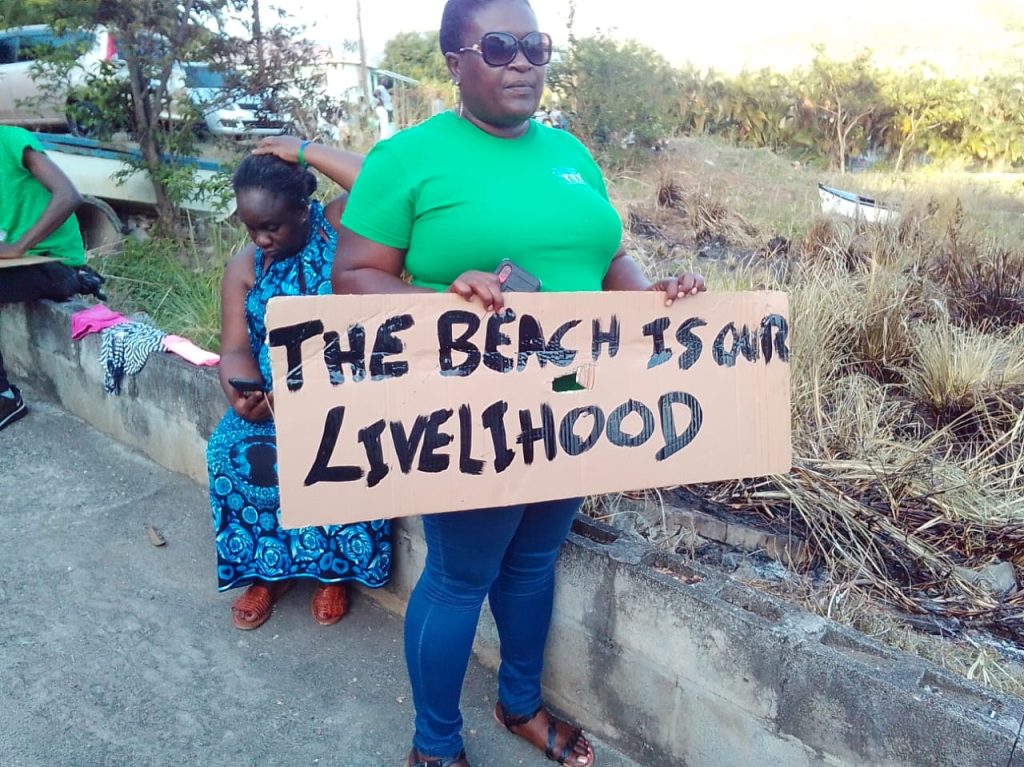 THE BEACH IS OUR
LIVELIHOOD